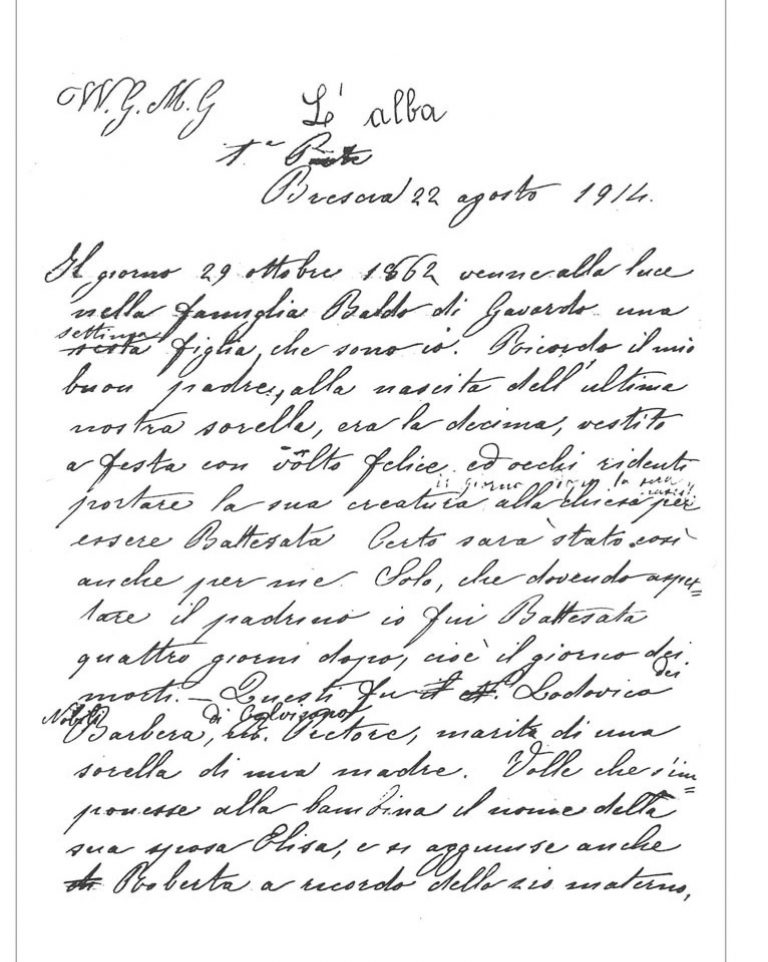 W. G. M. G
L' alba
1.a Parte
Brescia 22 agosto 1914.
Il giorno 29 ottobre 1862 venne alla luce
nella famiglia Baldo di Gavardo una
settima
sesta figlia, che sono io. Ricordo il mio
buon padre, alla nascita dell'ultima
nostra sorella, era la decima, vestito
a festa con volto felice ed occhi ridenti
il giorno la sera
portare la sua creatura alla chiesa per
essere Battesata Certo sarà stato così
anche per me. Solo, che dovendo aspet=
tare il padrino io fui Battesata
quattro giorni dopo, cioè il giorno dei
morti. — Questi fu il Lodovico dei
Nobili di
Barbera, Pretore, marito di una
sorella di mia madre. Volle che s'im=
ponesse alla bambina il nome della
sua sposa Elisa, e si aggiunse anche
Roberta a ricordo dello zio materno,